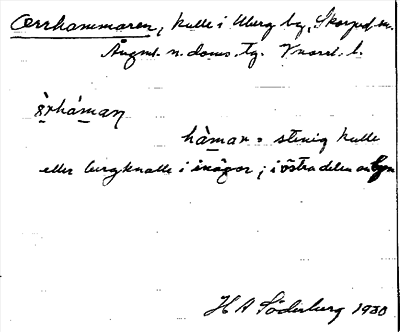 Orrhammaren, kulle i Uberg by, Skorped sn.
Ångml. n. doms. tg. V norrl. l.
òrhàman
hàmar = stenig kulle
eller bergknalle i inägor; i östra delen av byn
H A Söderberg 1930